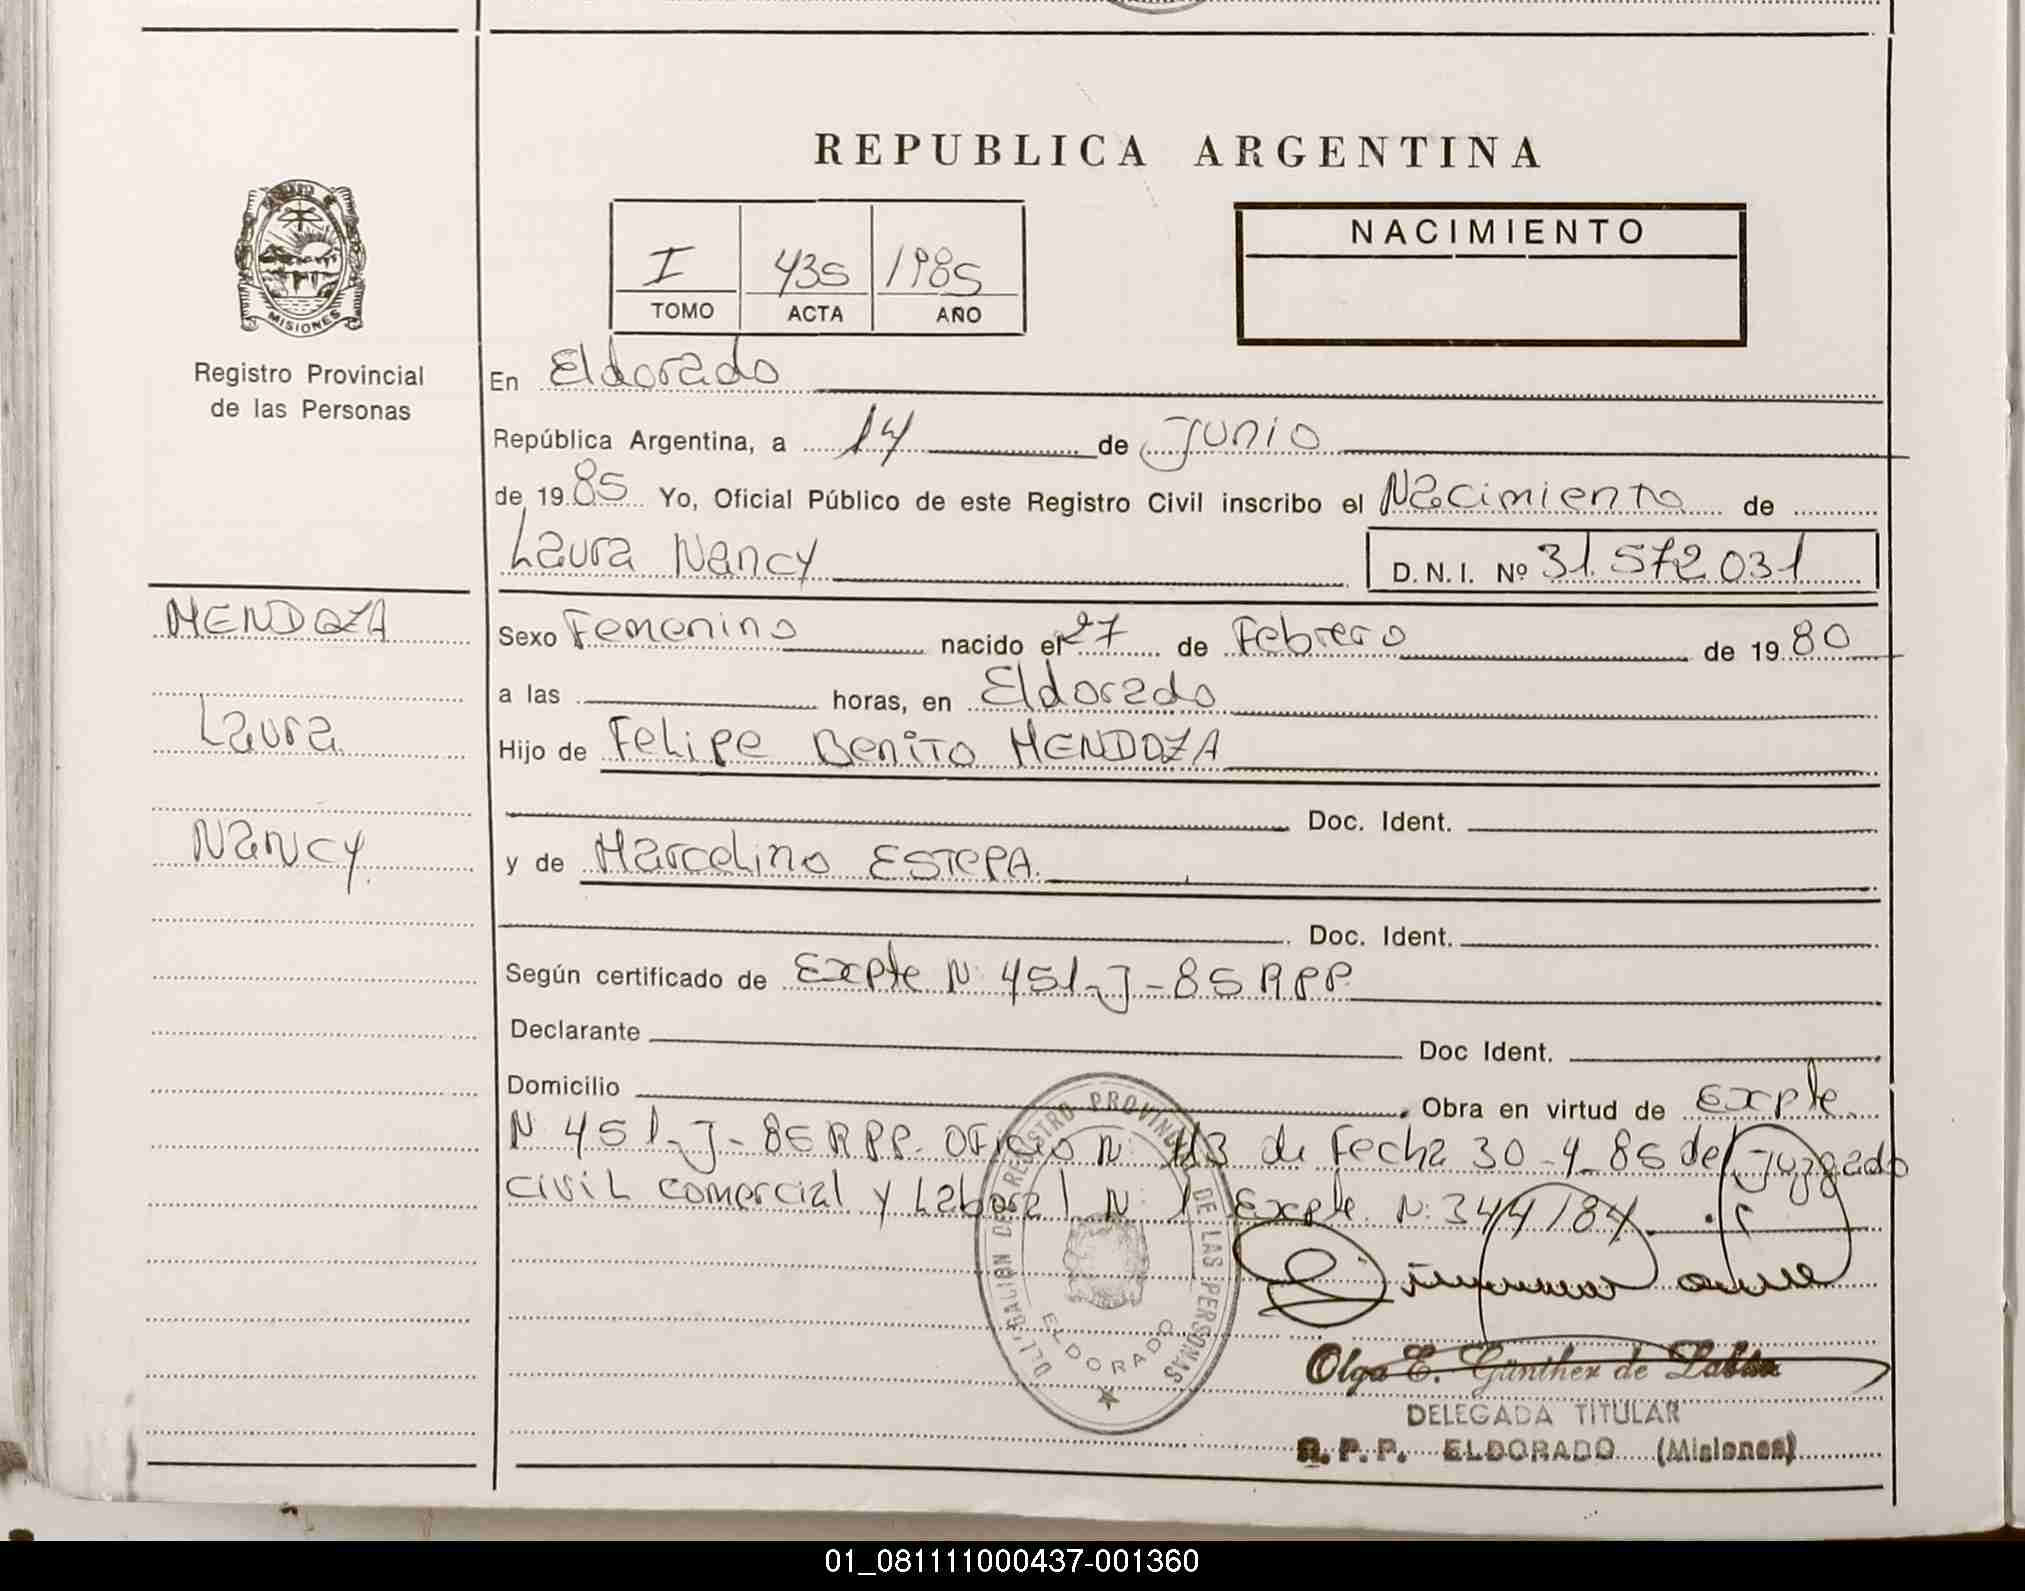 REPUBLICA ARGENTINA
NACIMIENTO
I 435 1985
TOMO ACTA AÑO
MISIONES
Registro Provincial
de las Personas
En Eldorado
República Argentina, a 14 de Junio
de 1985 Yo, Oficial Público de este Registro Civil inscribo el Nacimiento de
Laura Nancy D.N.I. Nº 31.572.031
MENDOZA
Laura
Nancy
Sexo Femenino nacido el 27 de Febrero de 1980
a las horas, en Eldorado
Hijo de Felipe Benito MENDOZA
Doc. Ident.
y de Marcelino ESTEPA
Doc. Ident.
Según certificado de Expte N: 451-J-85 RPP.
Declarante Doc Ident.
Domicilio Obra en virtud de Expte.
N: 451-J-85 RPP. Oficio N: 113 de Fecha 30-4-85 del Juzgado
Civil comercial y Laboral N: 1 Expte. N: 344/84
REGISTRO PROVINCIAL DE LAS PERSONAS
ELDORADO
Olga E. Günther de
DELEGADA TITULAR
R.P.P. ELDORADO (Misiones)
01_081111000437-001360